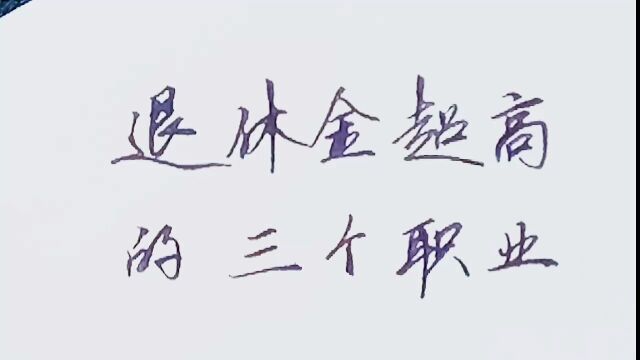 退休金超高
的三个职业